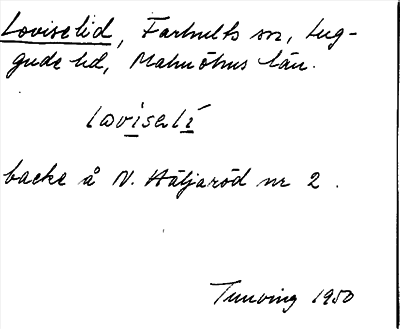 Loviselid, Farhults sn, Lug-
gude hd, Malmöhus län.
loviselí
backe å N. Häljaröd nr 2.
Tunving 1950